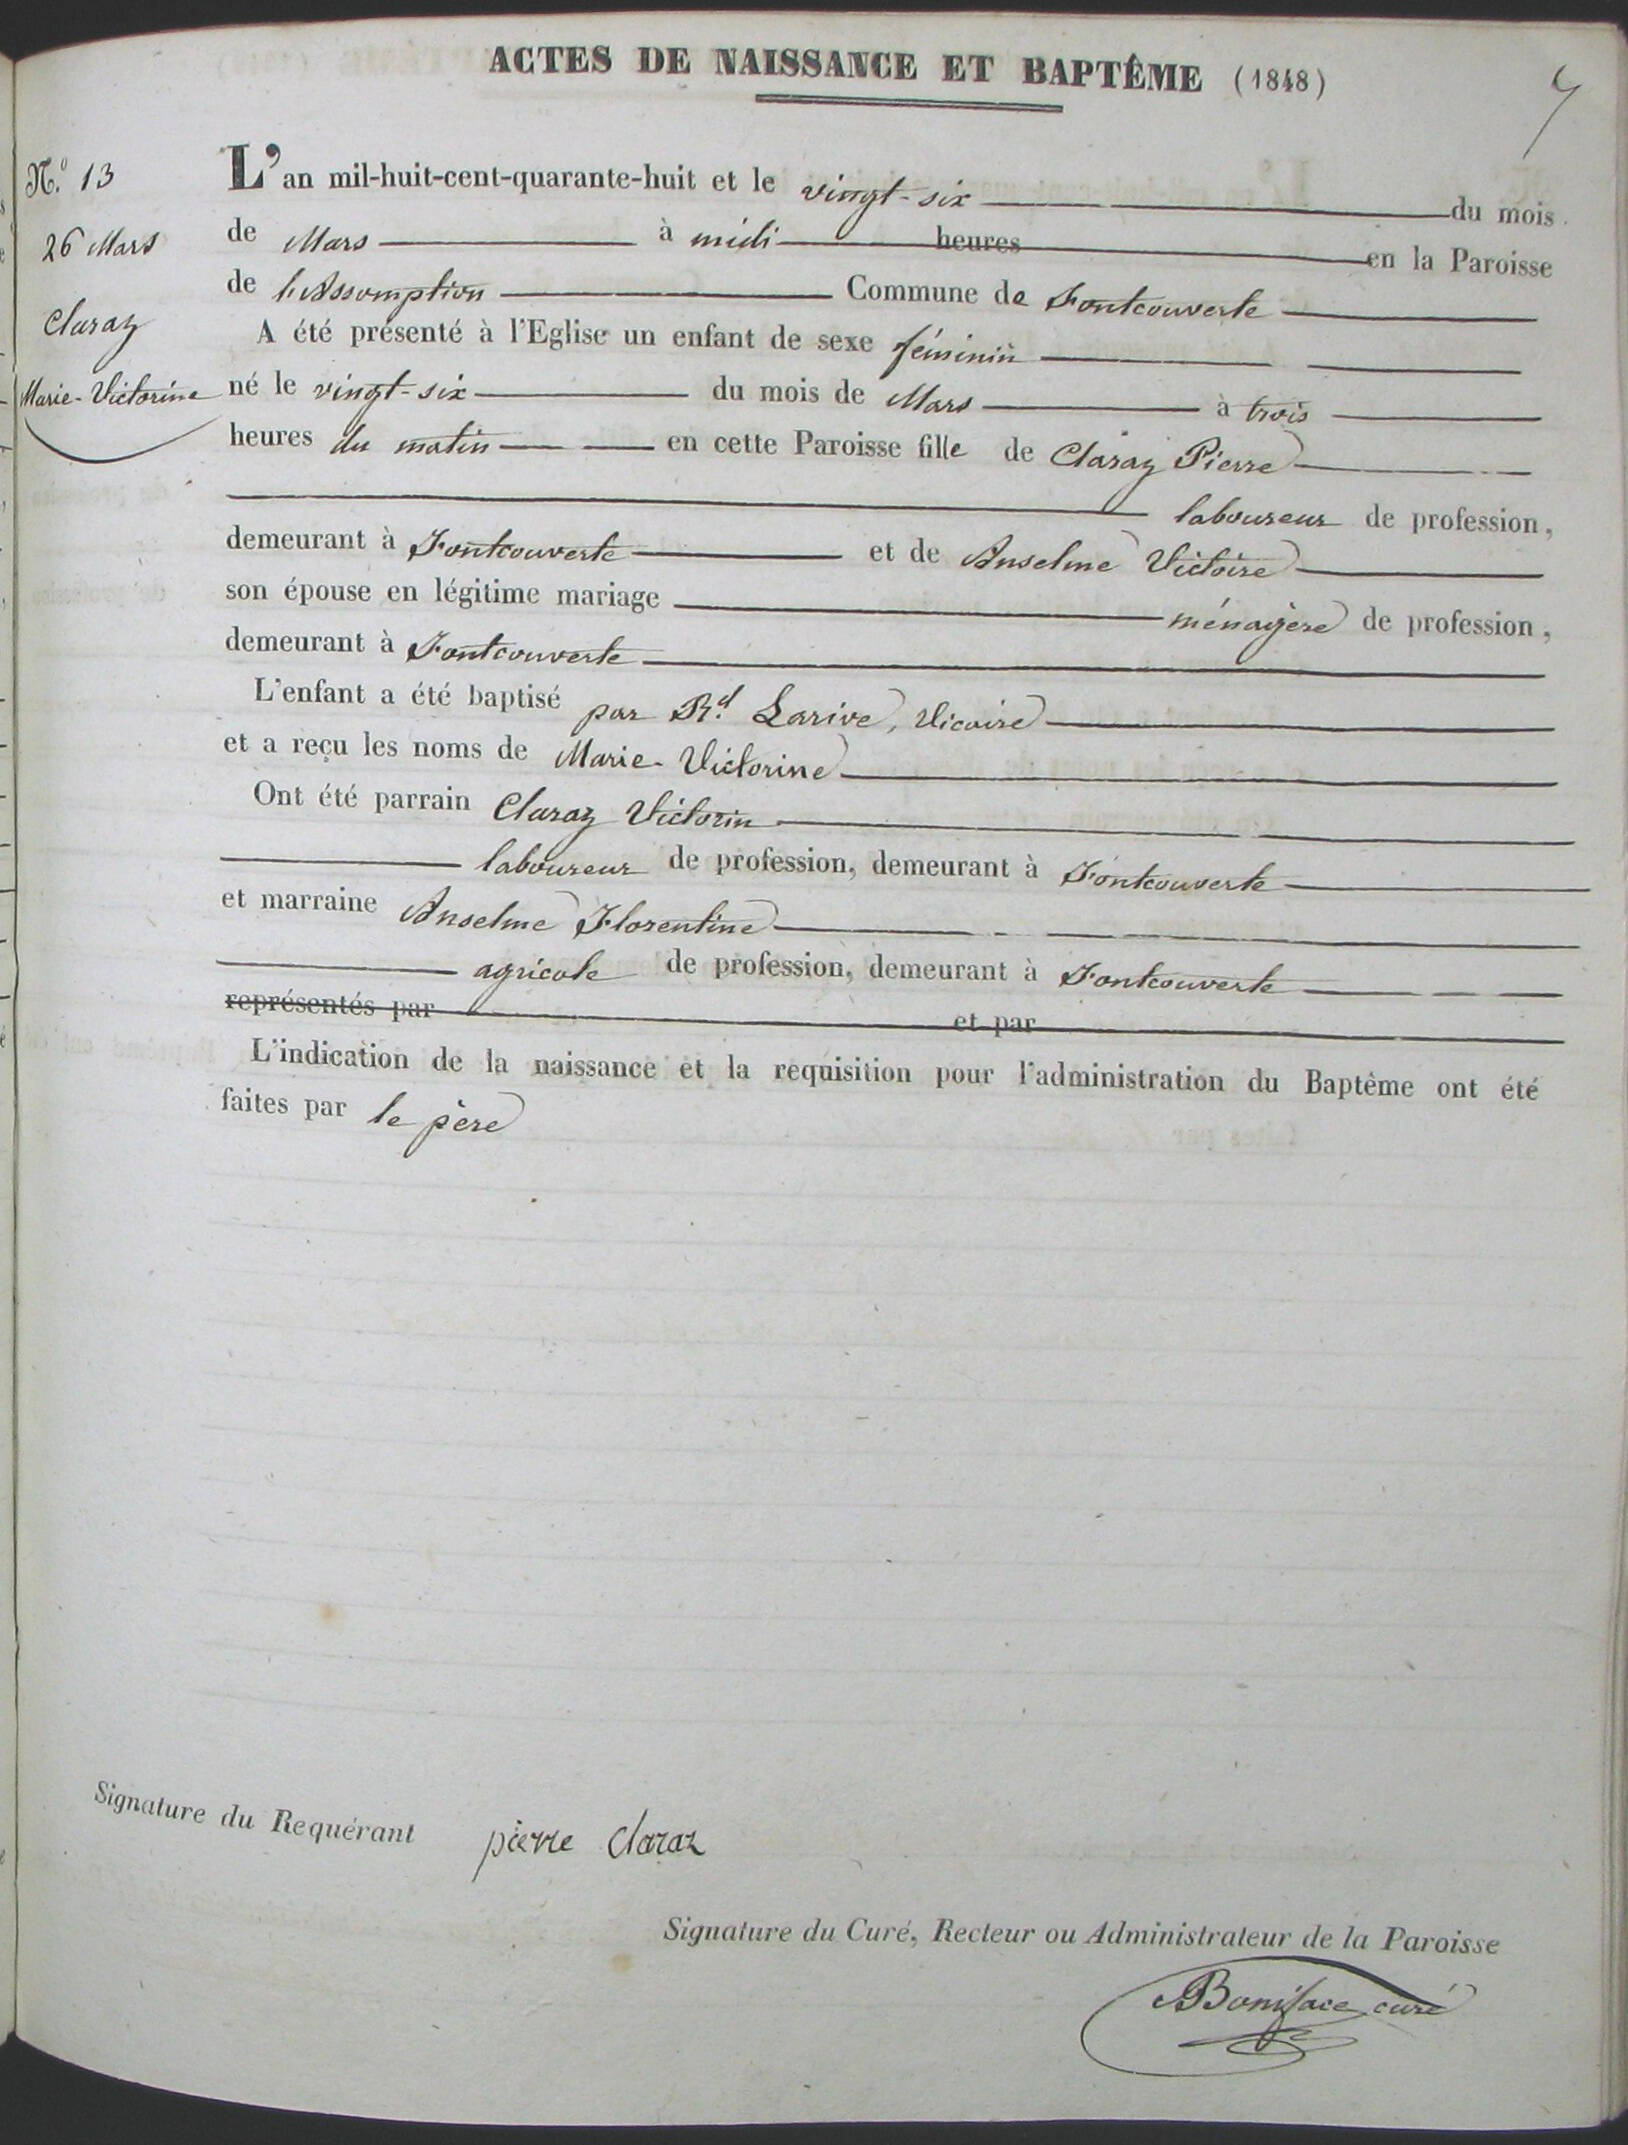 ACTES DE NAISSANCE ET BAPTÊME (1848)
N.º 13
26 Mars
Claraz
Marie-Victorine
L'an mil-huit-cent-quarante-huit et le vingt-six du mois
de Mars à midi heures en la Paroisse
de l'Assomption Commune de Fontcouverte
A été présenté à l'Eglise un enfant de sexe féminin
né le vingt-six du mois de Mars à trois
heures du matin en cette Paroisse fille de Claraz Pierre
laboureur de profession,
demeurant à Fontcouverte et de Anselme Victoire
son épouse en légitime mariage ménagère de profession,
demeurant à Fontcouverte
L'enfant a été baptisé par R.d Larive, Vicaire
et a reçu les noms de Marie-Victorine
Ont été parrain Claraz Victorin
laboureur de profession, demeurant à Fontcouverte
et marraine Anselme Florentine
agricole de profession, demeurant à Fontcouverte
représentés par et par
L'indication de la naissance et la requisition pour l'administration du Baptême ont été
faites par le père
Signature du Requérant pierre claraz
Signature du Curé, Recteur ou Administrateur de la Paroisse
Boniface curé